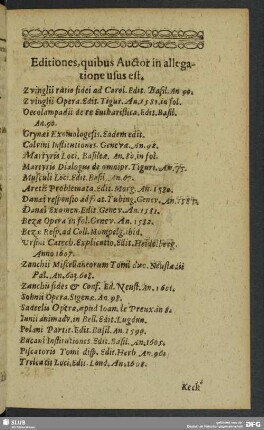 Editiones, quibus Auctor in allega-
tione usus est.
Zvinglii ratio fidei ad Carol. Edit. Basil. An. 90.
Zvinglii Opera. Edit. Tigur. An. 1581. in fol.
Oecolampadii de re Eucharistica. Edit. Basil.
An. 90.
Grynei Exomologesis. Eadem edit.
Calvini Institutiones. Geneva. An.
Martyris Loci, Basileæ. An. 80. in fol.
Martyris Dialogus de omnipr. Tiguri. An. 75.
Musculi Loci. Edit. Basil. An.
Aretii Problemata. Edit. Morg. An. 1580.
Danæi responsio ad Tubing. Genev. An.
Danæi Examen. Edit. Genev. An. 1581.
Bezæ Opera in fol. Genev. An. 1582.
Bezæ Resp. ad Coll. Mompelg. ibid.
Ursini Catech. Explicatio, Edit. Heidelberg.
Anno 1607.
Zanchii Miscellaneorum Tomi duo. Neustadii
Pal. An. 603. 608.
Zanchii fides & Conf. Ed. Neust. An. 1601.
Sohnii Opera. Sigenæ. An. 98.
Sadeelis Opera, apud Ioan. le Preux an.
Iunii animadv. in Bell. Edit. Lugdun.
Polani Partit. Edit. Basil. An. 1599.
Bucani Institutiones Edit. Basil. An. 1605.
Piscatoris Tomi disp. Edit. Herb. An.
Trelcatii Loci, Edit. Lond. An. 1608.
Keck
SLUB
DFG